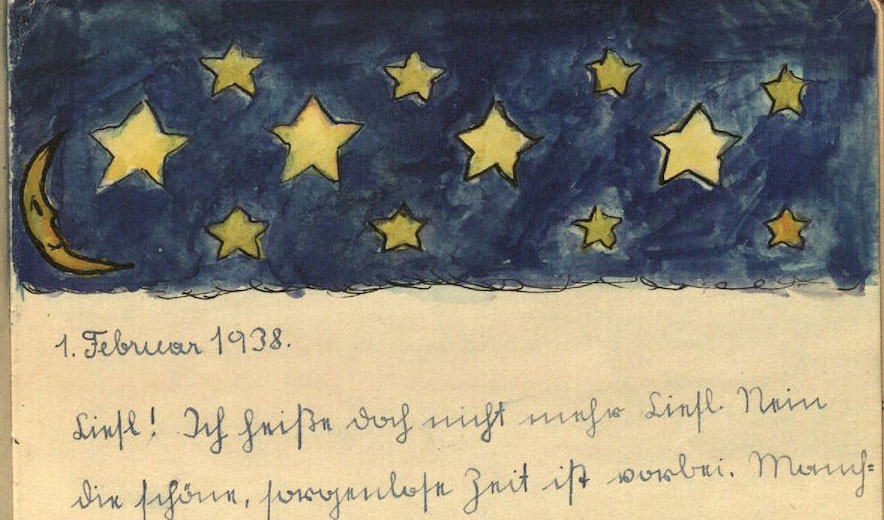 1. Februar 1938.
Liesl! Ich heiße doch nicht mehr Liesl. Nein
die schöne, sorgenlose Zeit ist vorbei. Manch=